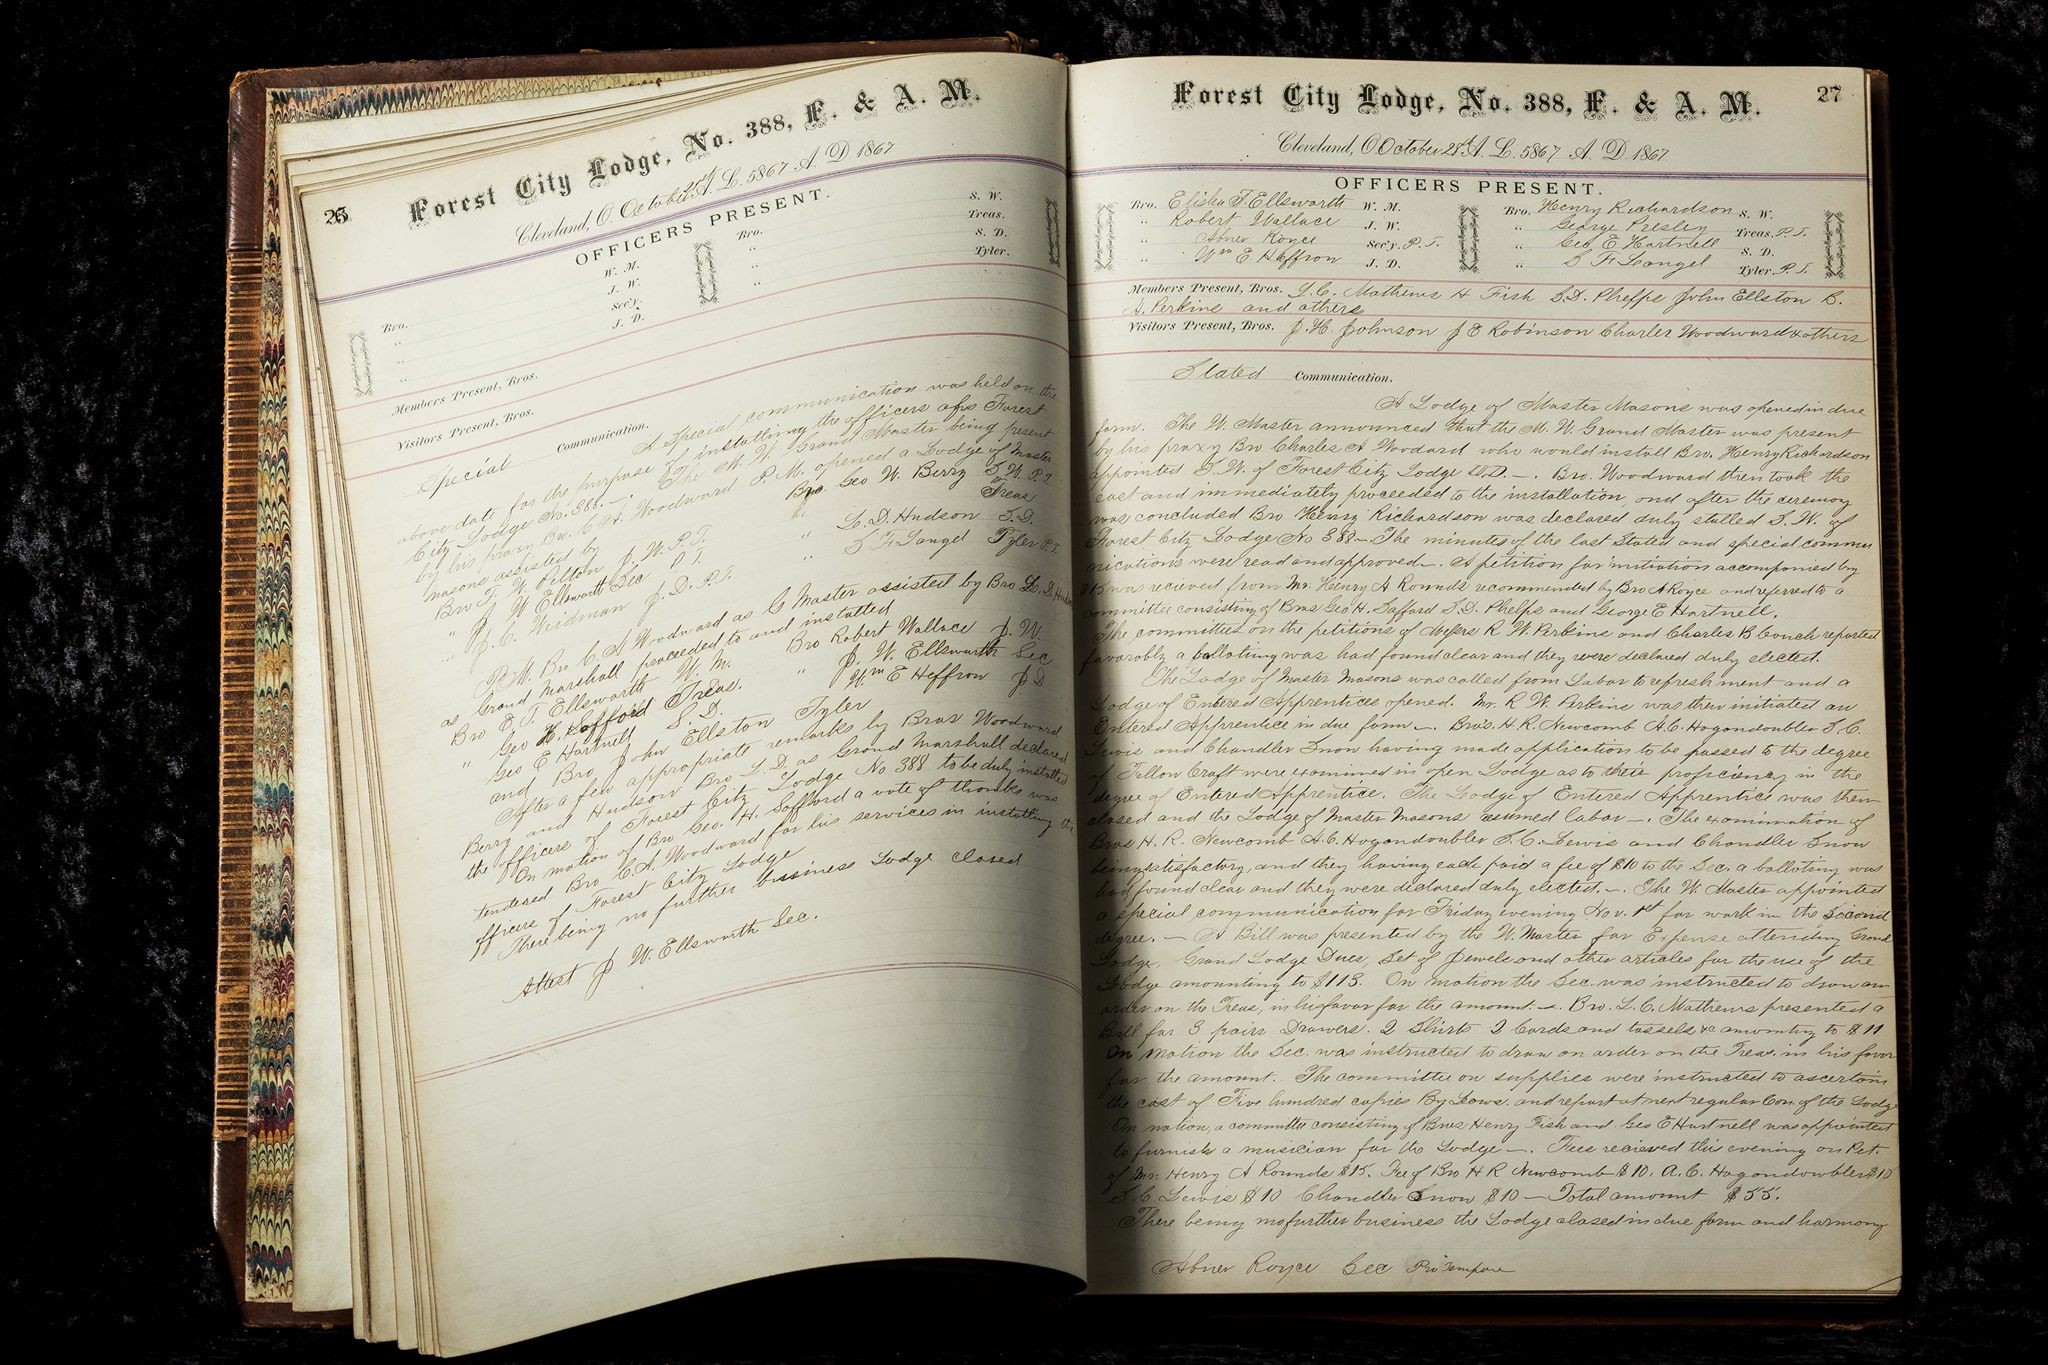 26
Forest City Lodge, No. 388, F. & A. M.
Cleveland, O. October A. L. 5867 A. D. 1867
OFFICERS PRESENT.
Bro. W. M. Bro. S. W.
" J. W. " Treas.
" Sec'y. " S. D.
" J. D. " Tyler.
Members Present, Bros.
Visitors Present, Bros.
Special Communication.
A Special communication was held on the
above date for the purpose of installing the officers of Forest
City Lodge No. 388. —. The M. W. Grand Master being present
by his proxy Bro. C. A. Woodward. P. M. opened a Lodge of Master
masons assisted by Bro. Geo W. Berry S. W. P. T.
Bro T. W. Pelton J. W. P. T. " Treas
" J W Ellsworth Sec P. T. " L. D. Hudson S. D.
" J. C. Weidman J. D. P. T. " S F Sangel Tyler P. T.
P. M. Bro C. A Woodward as G Master assisted by Bro L. D. Hudson
as Grand Marshall proceeded to and installed
Bro E. F. Ellsworth W. M. Bro Robert Wallace J. W.
" Geo H. Safford Treas. " J. W. Ellsworth Sec
Geo E Hartnell S. D. Wm E Heffron J D
and Bro John Ellston Tyler
After a few appropriate remarks by Bros Woodward
Berry and Hudson Bro L. D. as Grand Marshall declared
the officers of Forest City Lodge No 388 to be duly installed
On motion of Bro Geo. H. Safford a vote of thanks was
tendered Bro C. A. Woodward for his services in installing the
officers of Forest City Lodge
There being no further business Lodge closed
Attest J W. Ellsworth Sec.
27
Forest City Lodge, No. 388, F. & A. M.
Cleveland, O. October 28th A. L. 5867 A. D. 1867
OFFICERS PRESENT.
Bro. Elisha F. Ellsworth W. M. Bro. Henry Richardson S. W.
" Robert Wallace J. W. " George Presley Treas. P. T.
" Abner Royce Sec'y. P. T. " Geo E Hartnell S. D.
" Wm E Heffron J. D. " S F Sangel Tyler. P. T.
Members Present, Bros. L. C. Mathews H Fish S. D. Phelps John Ellston B.
A. Perkins and others
Visitors Present, Bros. J. H. Johnson J E Robinson Charles Woodward & others
Stated Communication.
A Lodge of Master Masons was opened in due
form. The W. Master announced that the M. W. Grand Master was present
by his proxy Bro Charles A Woodard who would install Bro. Henry Richardson
appointed S. W. of Forest City Lodge U.D. —. Bro. Woodward then took the
east and immediately proceeded to the installation, and after the ceremony
was concluded Bro Henry Richardson was declared duly stalled S. W. of
Forest City Lodge No 388 —. The minutes of the last Stated and special commu
nications were read and approved —. A petition for initiation accompanied by
$15 was recieved from Mr. Henry A Rounds recommended by Bro A Royce and referred to a
committee consisting of Bros Geo H. Safford S. D. Phelps and George E Hartnell.
The committees on the petitions of Messrs R. W. Perkins and Charles B Couch reported
favorably a ballotting was had found clear and they were declared duly elected.
The Lodge of Master Masons was called from Labor to refreshment and a
Lodge of Entered Apprentices opened. Mr. R W. Perkins was then initiated an
Entered Apprentice in due form —. Bros. H. R. Newcomb A. C. Hogandoubler S. C.
Lewis and Chandler Snow having made application to be passed to the degree
of Fellow Craft were examined in open Lodge as to their proficiency in the
degree of Entered Apprentice. The Lodge of Entered Apprentice was then
closed and the Lodge of Master Masons resumed Labor —. The examination of
Bros H. R. Newcomb A. C. Hogandoubler S. C. Lewis and Chandler Snow
being satisfactory, and they having each paid a fee of $10 to the Sec. a ballotting was
had found clear and they were declared duly elected. —. The W. Master appointed
a special communication for Friday evening Nov. 1st for work in the second
degree. — A Bill was presented by the W. Master for Expense attending Grand
Lodge, Grand Lodge Dues, Set of Jewels and other articles for the use of the
Lodge amounting to $113. On motion the Sec. was instructed to draw an
order on the Treas, in his favor for the amount. —. Bro. L. C. Mathews presented a
Bill for 3 pairs Drawers. 2 Shirts 2 Cords and tassels &c amounting to $11
On motion the Sec. was instructed to draw an order on the Treas. in his favor
for the amount. The committee on supplies were instructed to ascertain
the cost of Five hundred copies By Laws. and report at next regular Com. of the Lodge
On motion, a committee consisting of Bros Henry Fish and Geo E Hartnell was appointed
to furnish a musician for the Lodge —. Fees recieved this evening on Pet.
of Mr. Henry A Rounds $15. Fee of Bro H R Newcomb $10. A. C. Hogandoubler $10
S. C. Lewis $10 Chandler Snow $10 — Total amount $55.
There being no further business the Lodge closed in due form and harmony
Abner Royce Sec Pro Tempore